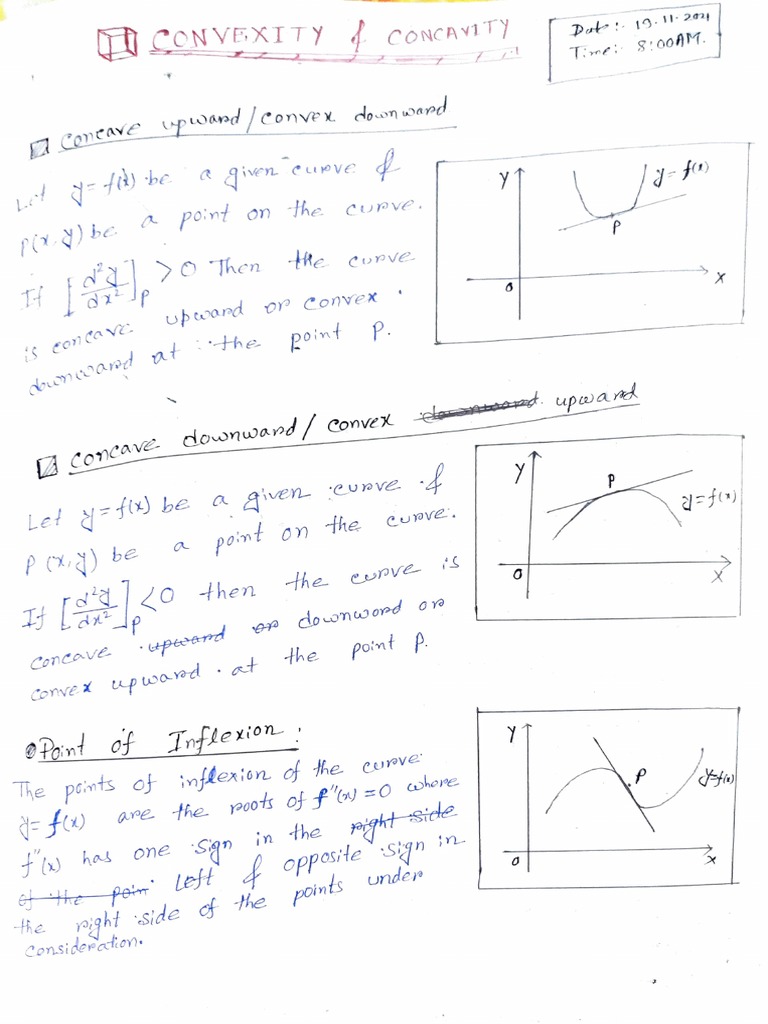 CONVEXITY & CONCAVITY
Date:- 19.11.2021
Time:- 8:00AM.
Concave upward/convex downward
Let y=f(x) be a given curve &
P(x,y) be a point on the curve.
If [d²y/dx²]P >0 Then the curve
is concave upward or convex
downward at the point P.
Y
y=f(x)
P
O
X
Concave downward/convex ~~downward~~ upward
Let y=f(x) be a given curve &
P(x,y) be a point on the curve.
If [d²y/dx²]P <0 then the curve is
concave ~~upward~~ ~~or~~ downward or
convex upward at the point P.
Y
P
y=f(x)
O
X
Point of Inflexion:
The points of inflexion of the curve
y=f(x) are the roots of f''(x)=0 where
f''(x) has one sign in the ~~right side~~
~~of the poin~~ left & opposite sign in
the right side of the points under
consideration.
Y
P
y=f(x)
O
X